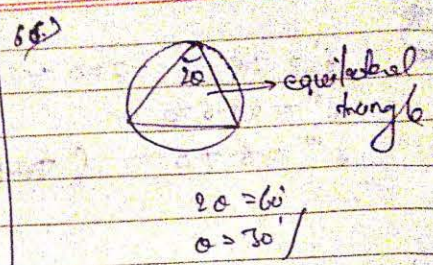 2θ
equilateral
triangle
2θ = 60°
θ = 30°